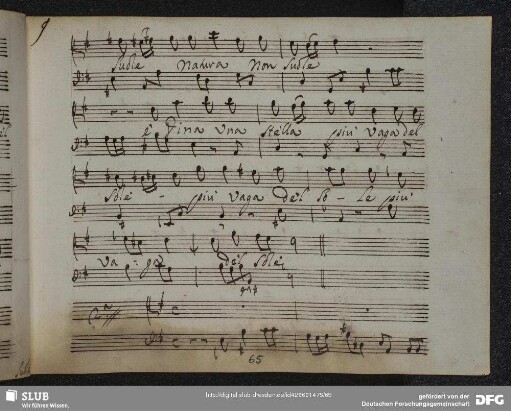 9
sudle natura non sudle
è Fina una stella piu vaga del
Sole - piu vaga del so - le piu
va - ga del sole
65
SLUB
Wir führen Wissen.
http://digital.slub-dresden.de/id426601475/69
gefördert von der
Deutschen Forschungsgemeinschaft
DFG